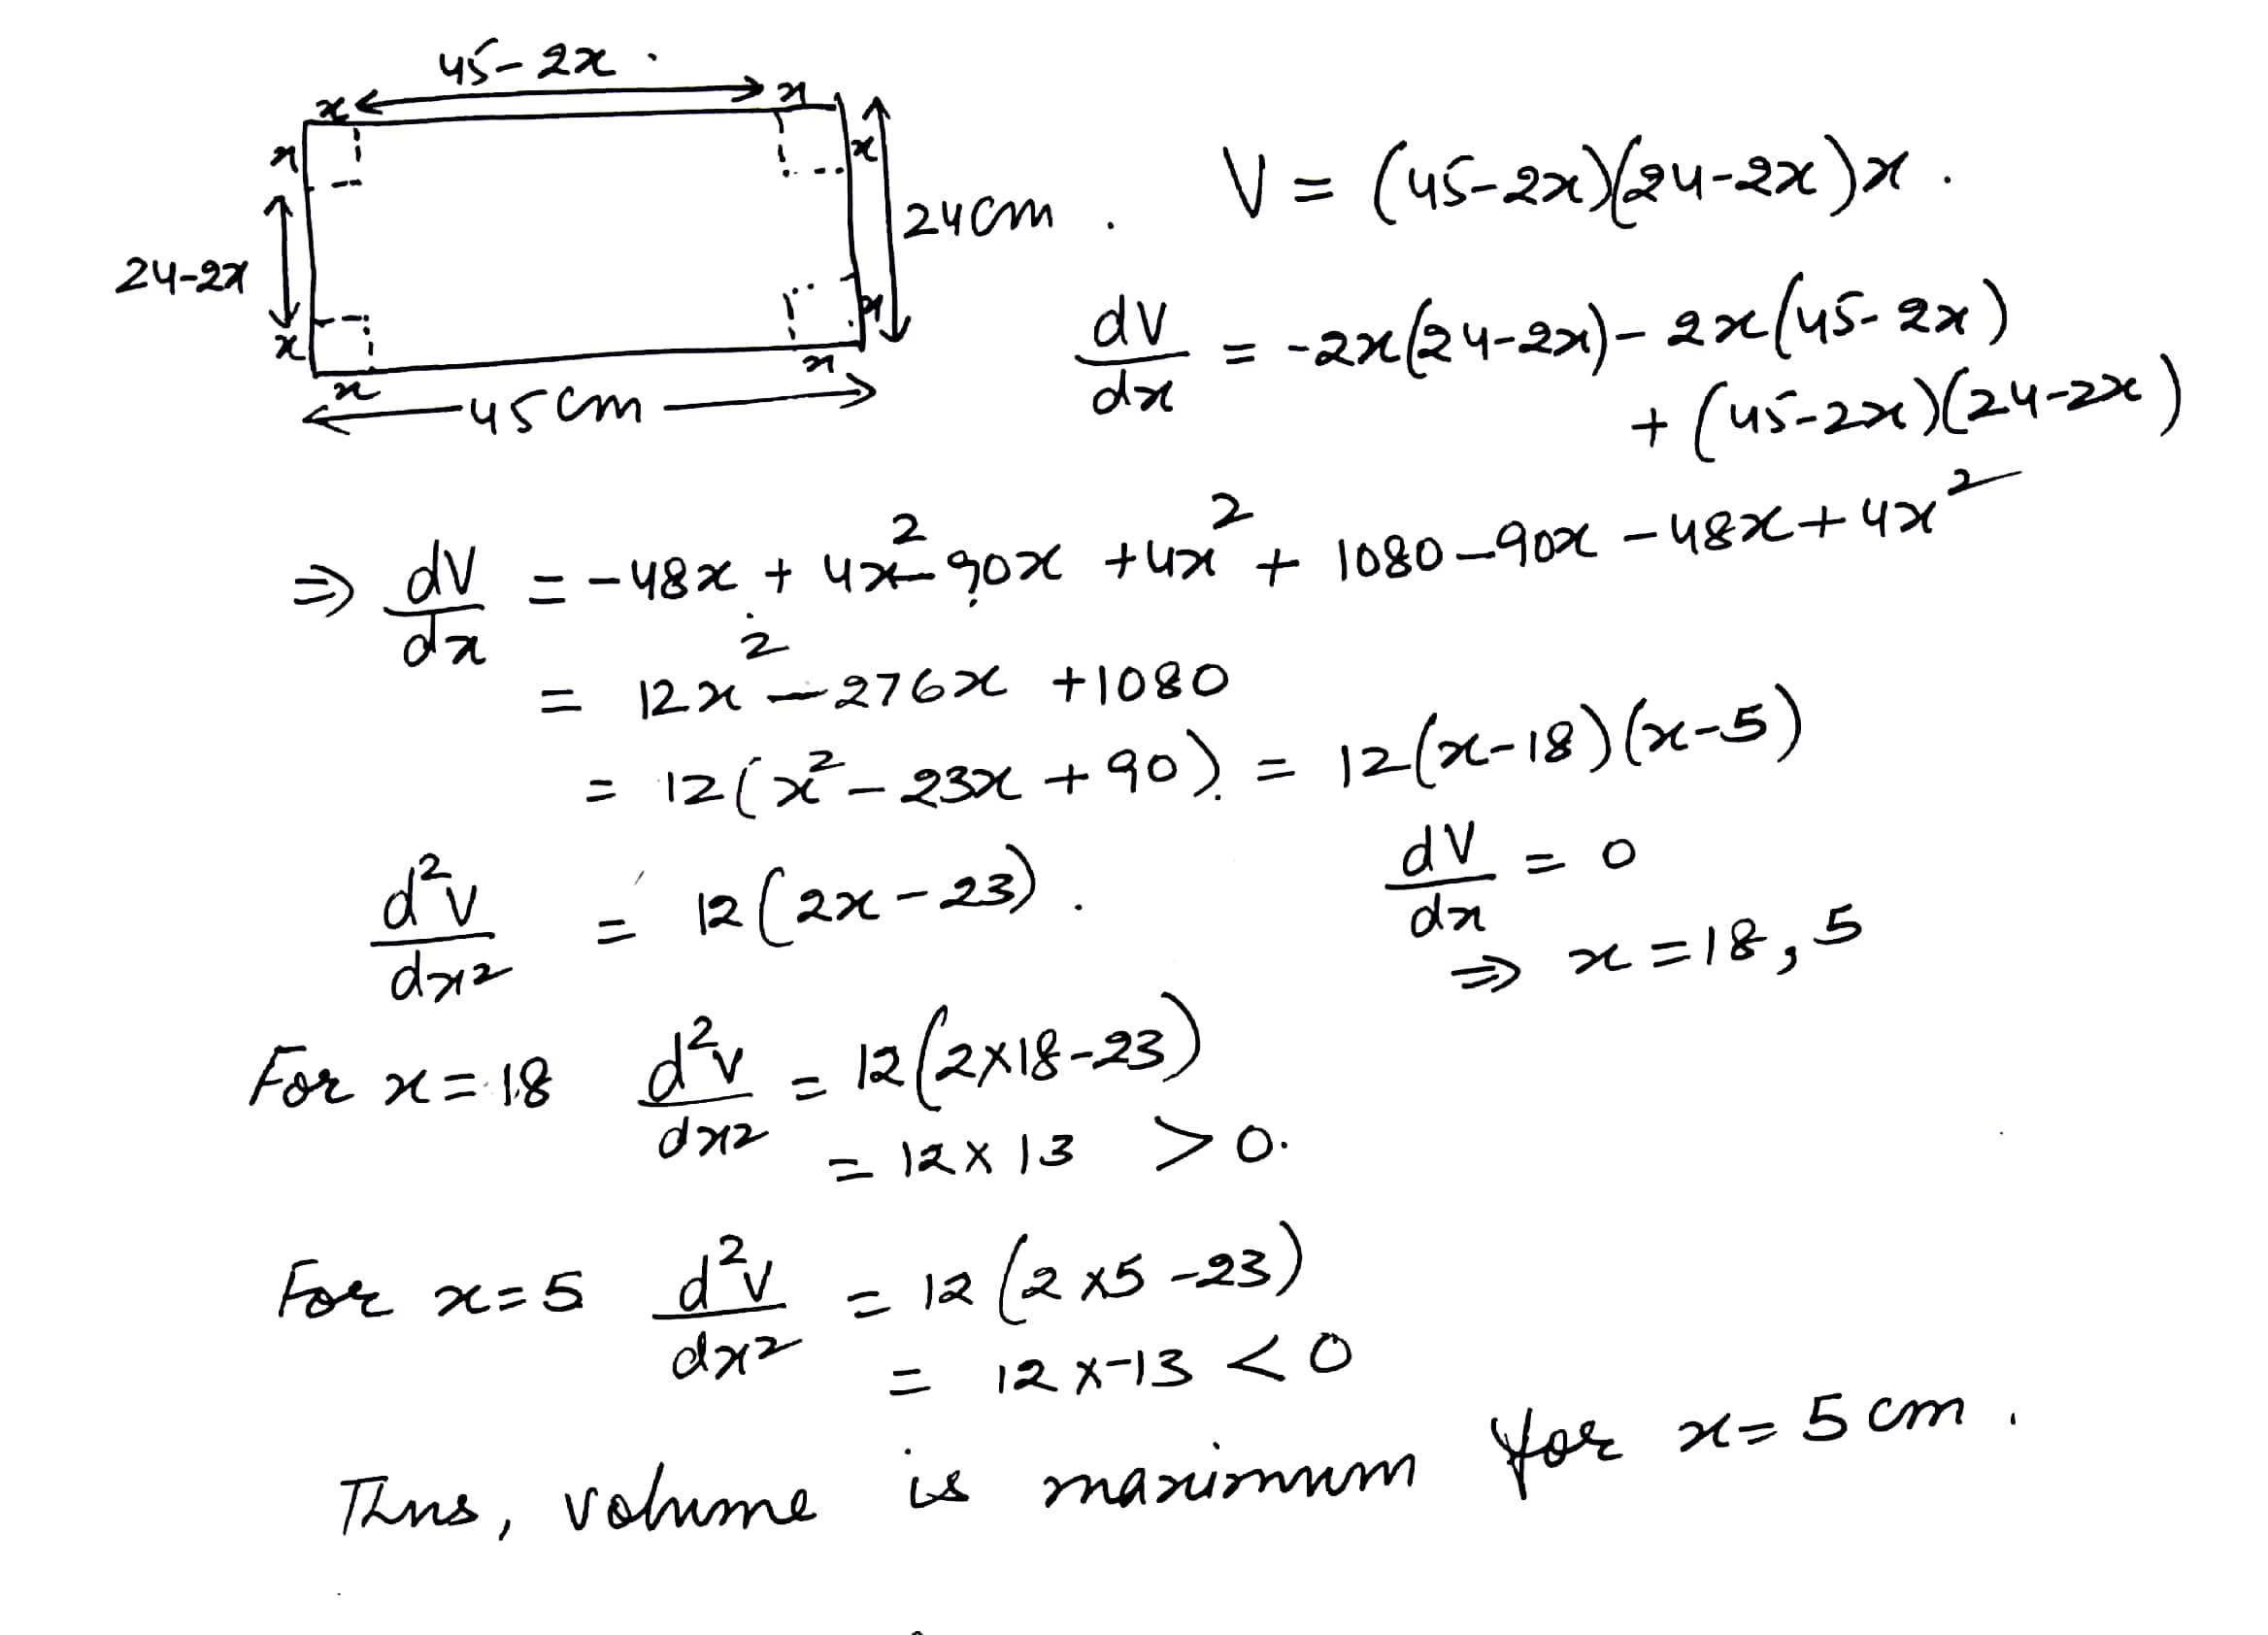 45-2x
x x
x x
24cm. V = (45-2x)(24-2x)x.
24-2x
x x
x x
45cm
dV/dx = -2x(24-2x) - 2x(45-2x)
+ (45-2x)(24-2x)
⇒ dV/dx = -48x + 4x² - 90x + 4x² + 1080 - 90x - 48x + 4x²
= 12x² - 276x + 1080
= 12(x² - 23x + 90) = 12(x-18)(x-5)
d²V/dx² = 12(2x-23). dV/dx = 0
⇒ x = 18, 5
For x = 18 d²V/dx² = 12(2×18-23)
= 12×13 > 0.
For x = 5 d²V/dx² = 12(2×5-23)
= 12×-13 < 0
Thus, volume is maximum for x = 5 cm.